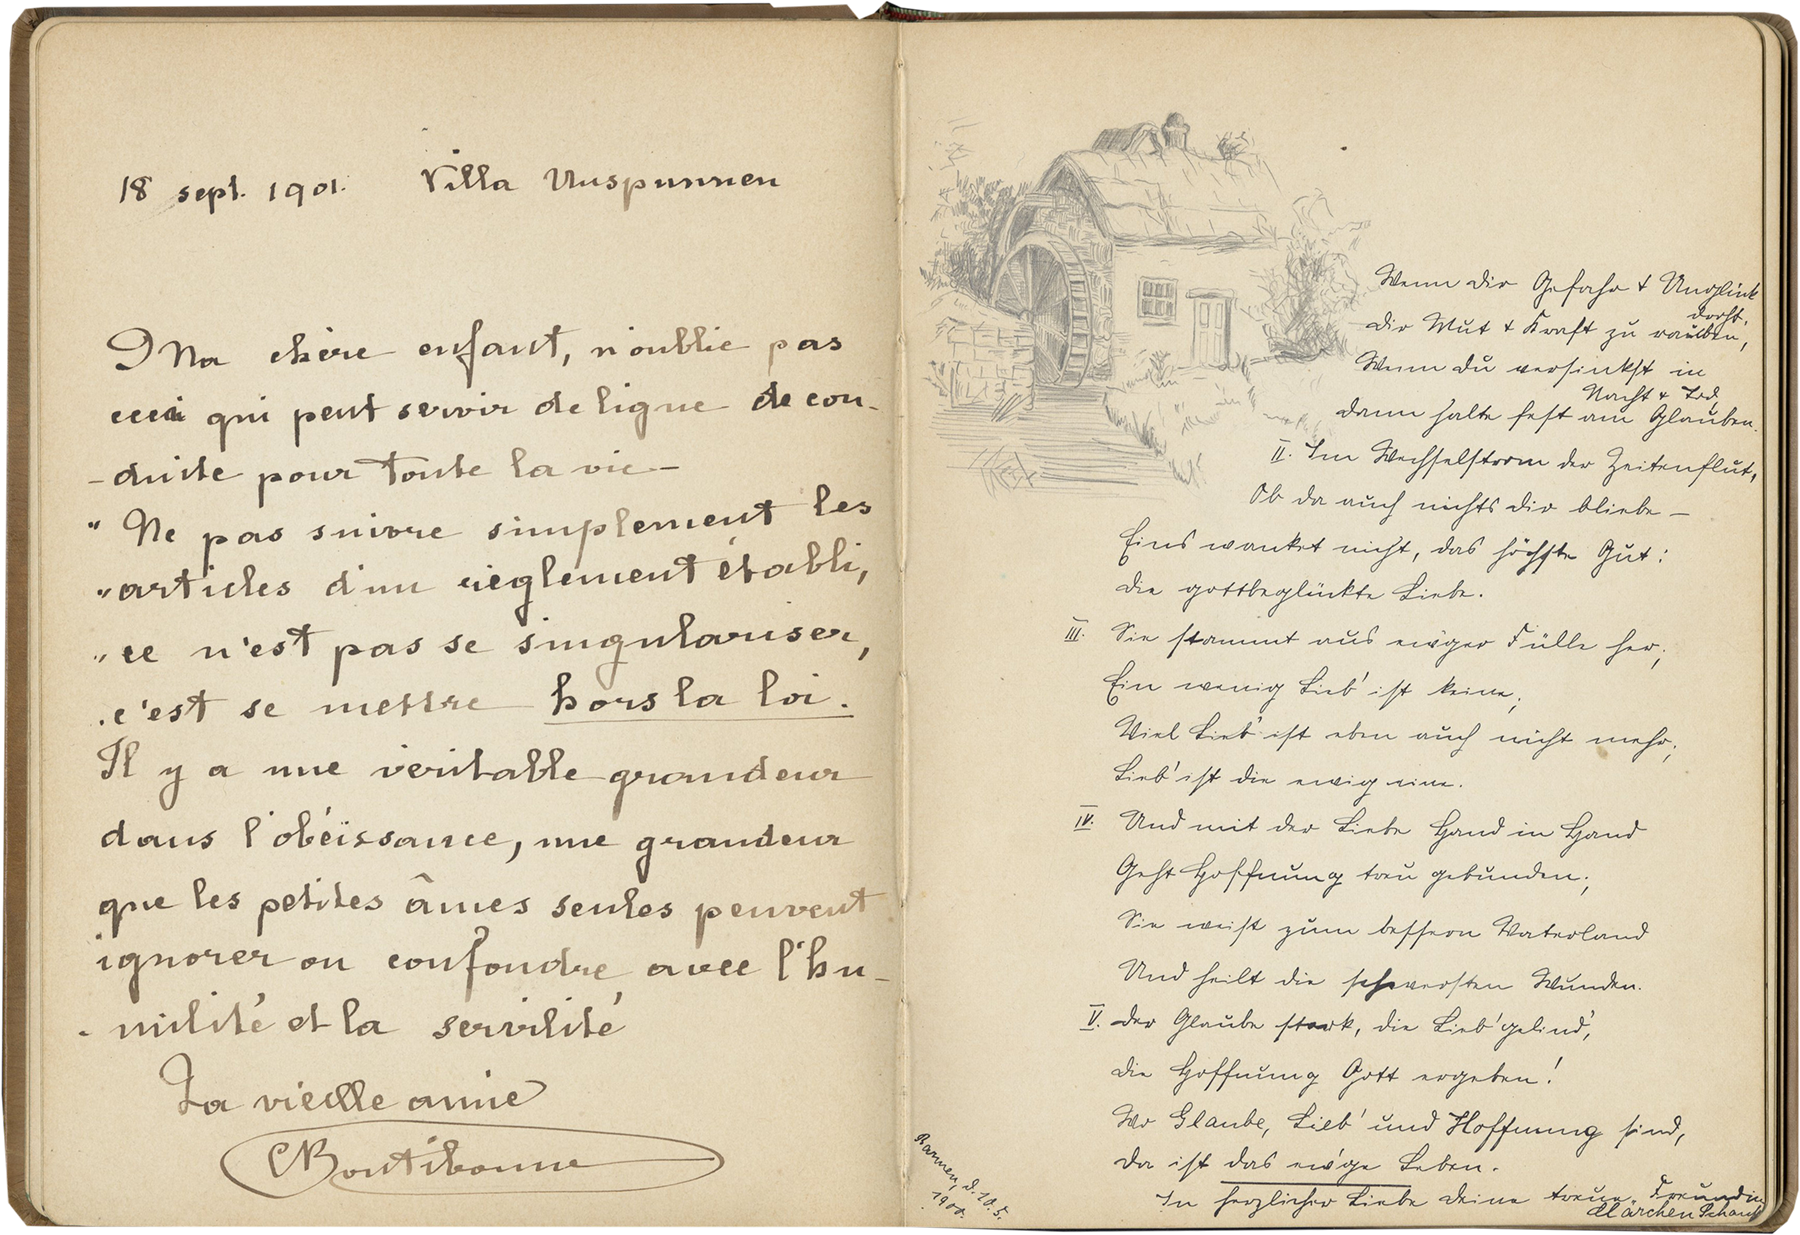 18 sept. 1901. Villa Unspunnen
Ma chère enfant, n'oublie pas
ceci qui peut servir de ligne de con-
-duite pour toute la vie-
" Ne pas suivre simplement les
" articles d'un règlement établi,
" ce n'est pas se singulariser,
c'est se mettre hors la loi.
Il y a une véritable grandeur
dans l'obéissance, une grandeur
que les petites âmes seules peuvent
ignorer ou confondre avec l'hu-
-milité et la servilité
La vieille amie
Wenn dir Gefahr + Unglück
droht,
dir Mut + Kraft zu rauben,
Wenn du versinkst in
Nacht + Tod
dann halte fest am Glauben.
II. Im Wechselstrom der Zeitenflut,
Ob da auch nichts dir bliebe —
Eins wanket nicht, das höchste Gut:
die gottbeglückte Liebe.
III. Sie stammt aus ew'ger Fülle her;
Ein wenig Lieb' ist keine;
Viel Lieb' ist eben auch nicht mehr;
Lieb' ist die ewig eine.
IV. Und mit der Liebe Hand in Hand
Geht Hoffnung treu gebunden;
Sie weist zum bessern Vaterland
Und heilt die schwersten Wunden.
V. der Glaube stark, die Lieb' gelind',
die Hoffnung Gott ergeben!
Wo Glaube, Lieb' und Hoffnung sind,
da ist das ew'ge Leben.
In herzlicher Liebe deine treue Freundin
Clärchen
Barmen, d. 10.5.
1900.